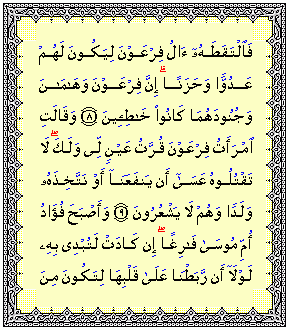 فَٱلْتَقَطَهُۥٓ ءَالُ فِرْعَوْنَ لِيَكُونَ لَهُمْ
عَدُوًّا وَحَزَنًا ۗ إِنَّ فِرْعَوْنَ وَهَٰمَٰنَ
وَجُنُودَهُمَا كَانُوا۟ خَٰطِـِٔينَ ٨ وَقَالَتِ
ٱمْرَأَتُ فِرْعَوْنَ قُرَّتُ عَيْنٍ لِّى وَلَكَ ۖ لَا
تَقْتُلُوهُ عَسَىٰٓ أَن يَنفَعَنَآ أَوْ نَتَّخِذَهُۥ
وَلَدًا وَهُمْ لَا يَشْعُرُونَ ٩ وَأَصْبَحَ فُؤَادُ
أُمِّ مُوسَىٰ فَٰرِغًا ۖ إِن كَادَتْ لَتُبْدِى بِهِۦ
لَوْلَآ أَن رَّبَطْنَا عَلَىٰ قَلْبِهَا لِتَكُونَ مِنَ